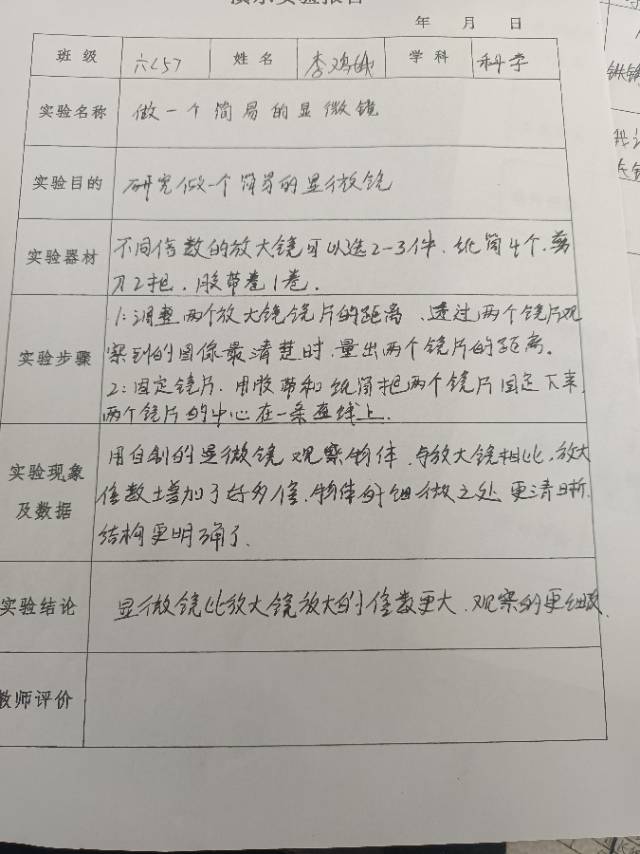 演示实验报告
年 月 日
班 级 六(5) 姓 名 李 学 科 科学
实验名称 做一个简易的显微镜
实验目的 研究做一个简易的显微镜
实验器材 不同倍数的放大镜可以选2-3件.纸筒4个.剪
刀2把.胶带卷1卷.
实验步骤 1:调整两个放大镜镜片的距离、透过两个镜片观
察到的图像最清楚时.量出两个镜片的距离。
2:固定镜片.用胶带和纸筒把两个镜片固定下来,
两个镜片的中心在一条直线上.
实验现象及数据 用自制的显微镜观察物体.与放大镜相比,放大
倍数增加了好多倍.物体的细微之处更清晰.
结构更明确了.
实验结论 显微镜比放大镜放大的倍数更大.观察的更细致.
教师评价